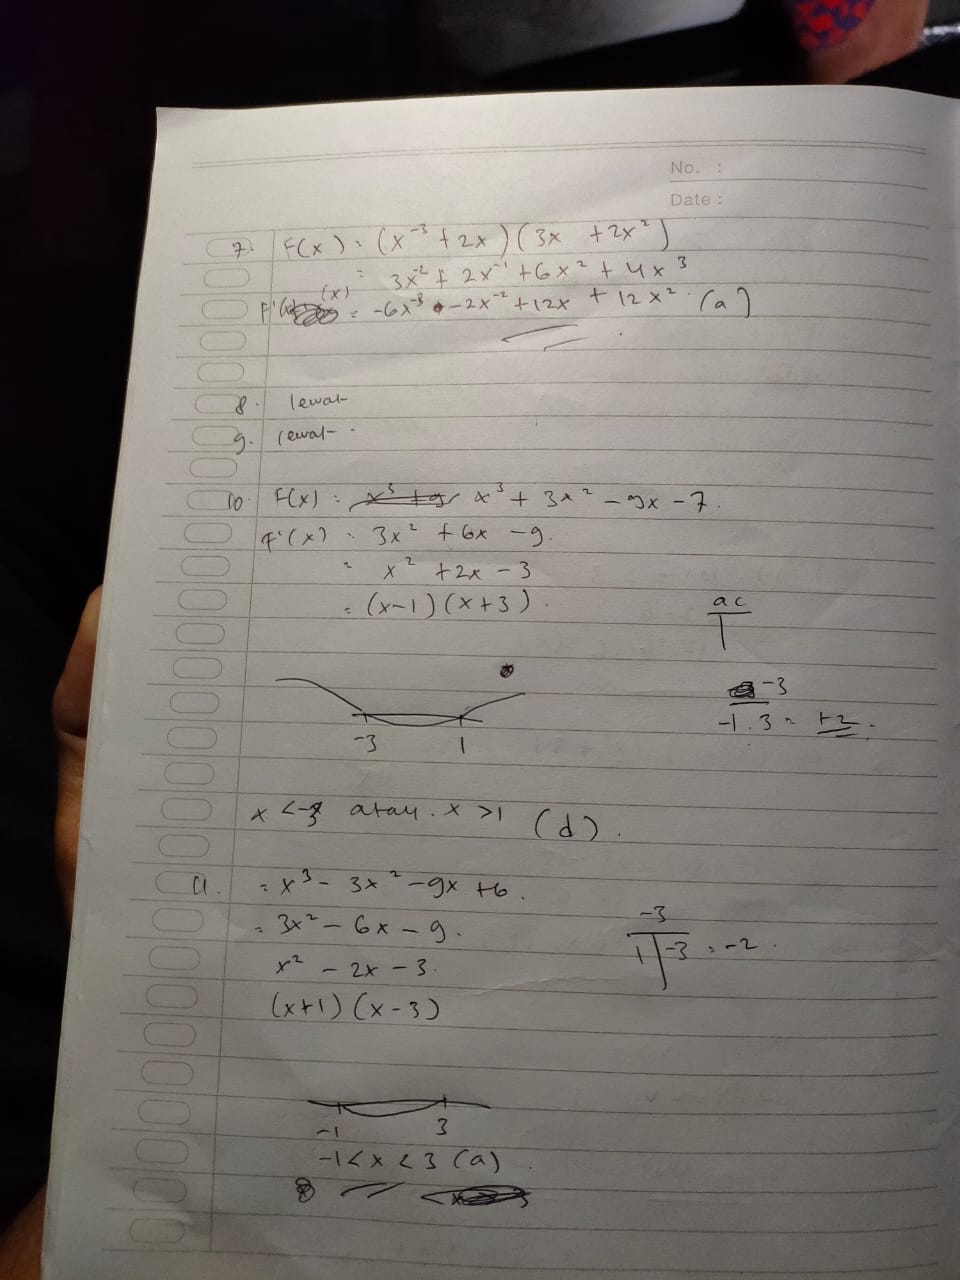 No. :
Date :
7. F(x) = (x⁻³ + 2x)(3x + 2x²)
= 3x⁻² + 2x⁻¹ + 6x² + 4x³
F'(x) = -6x⁻³ - 2x⁻² + 12x + 12x² (a)
8. lewat
9. lewat
10. F(x) = x³ + 3x² - 9x - 7.
F'(x) = 3x² + 6x - 9.
= x² + 2x - 3
= (x-1)(x+3).
ac
-3
-1 . 3 = +2
-3 1
x < -3 atau x > 1 (d).
11. = x³ - 3x² - 9x + 6.
= 3x² - 6x - 9.
-3
1 -3 = -2
x² - 2x - 3.
(x+1)(x-3)
-1 3
-1 < x < 3 (a)